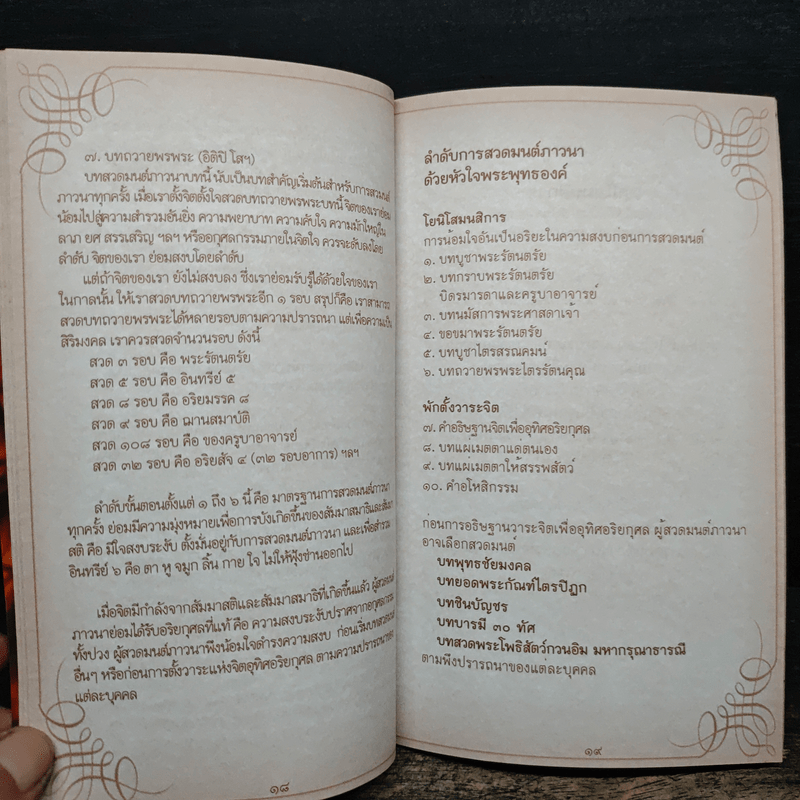 ๗. บทถวายพรพระ (อิติปิ โสฯ)
บทสวดมนต์ภาวนาบทนี้ นับเป็นบทสำคัญเริ่มต้นสำหรับการสวดมนต์
ภาวนาทุกครั้ง เมื่อเราตั้งจิตตั้งใจสวดบทถวายพรพระบทนี้ จิตของเราย่อม
น้อมไปสู่ความสำรวมอันยิ่ง ความพยาบาท ความคับใจ ความมักใหญ่ใน
ลาภ ยศ สรรเสริญ ฯลฯ หรืออกุศลกรรมภายในจิตใจ ควรจะดับลงโดย
ลำดับ จิตของเรา ย่อมสงบโดยลำดับ
แต่ถ้าจิตของเรา ยังไม่สงบลง ซึ่งเราย่อมรับรู้ได้ด้วยใจของเรา
ในกาลนั้น ให้เราสวดบทถวายพรพระอีก ๑ รอบ สรุปก็คือ เราสามารถ
สวดบทถวายพรพระได้หลายรอบตามความปรารถนา แต่เพื่อความเป็น
สิริมงคล เราควรสวดจำนวนรอบ ดังนี้
สวด ๓ รอบ คือ พระรัตนตรัย
สวด ๕ รอบ คือ อินทรีย์ ๕
สวด ๘ รอบ คือ อริยมรรค ๘
สวด ๙ รอบ คือ ฌานสมาบัติ
สวด ๑๐๘ รอบ คือ ของครูบาอาจารย์
สวด ๓๒ รอบ คือ อริยสัจ ๔ (๓๒ รอบอาการ) ฯลฯ
ลำดับขั้นตอนตั้งแต่ ๑ ถึง ๖ นี้ คือ มาตรฐานการสวดมนต์ภาวนา
ทุกครั้ง ย่อมมีความมุ่งหมายเพื่อการบังเกิดขึ้นของสัมมาสมาธิและสัมมา
สติ คือ มีใจสงบระงับ ตั้งมั่นอยู่กับการสวดมนต์ภาวนา และเพื่อสำรวม
อินทรีย์ ๖ คือ ตา หู จมูก ลิ้น กาย ใจ ไม่ให้ฟุ้งซ่านออกไป
เมื่อจิตมีกำลังจากสัมมาสติและสัมมาสมาธิที่เกิดขึ้นแล้ว ผู้สวดมนต์
ภาวนาย่อมได้รับอริยกุศลที่แท้ คือ ความสงบระงับปราศจากอกุศลกรรม
ทั้งปวง ผู้สวดมนต์ภาวนาพึงน้อมใจดำรงความสงบ ก่อนเริ่มบทสวดมนต์
อื่นๆ หรือก่อนการตั้งวาระแห่งจิตอุทิศอริยกุศล ตามความปรารถนาของ
แต่ละบุคคล
๑๘
ลำดับการสวดมนต์ภาวนา
ด้วยหัวใจพระพุทธองค์
โยนิโสมนสิการ
การน้อมใจอันเป็นอริยะในความสงบก่อนการสวดมนต์
๑. บทบูชาพระรัตนตรัย
๒. บทกราบพระรัตนตรัย
บิดรมารดาและครูบาอาจารย์
๓. บทนมัสการพระศาสดาเจ้า
๔. ขอขมาพระรัตนตรัย
๕. บทบูชาไตรสรณคมน์
๖. บทถวายพรพระไตรรัตนคุณ
พักตั้งวาระจิต
๗. คำอธิษฐานจิตเพื่ออุทิศอริยกุศล
๘. บทแผ่เมตตาแด่ตนเอง
๙. บทแผ่เมตตาให้สรรพสัตว์
๑๐. คำอโหสิกรรม
ก่อนการอธิษฐานวาระจิตเพื่ออุทิศอริยกุศล ผู้สวดมนต์ภาวนา
อาจเลือกสวดมนต์
บทพุทธชัยมงคล
บทยอดพระกัณฑ์ไตรปิฎก
บทชินบัญชร
บทบารมี ๓๐ ทัศ
บทสวดพระโพธิสัตว์กวนอิม มหากรุณาธารณี
ตามพึงปรารถนาของแต่ละบุคคล
๑๙